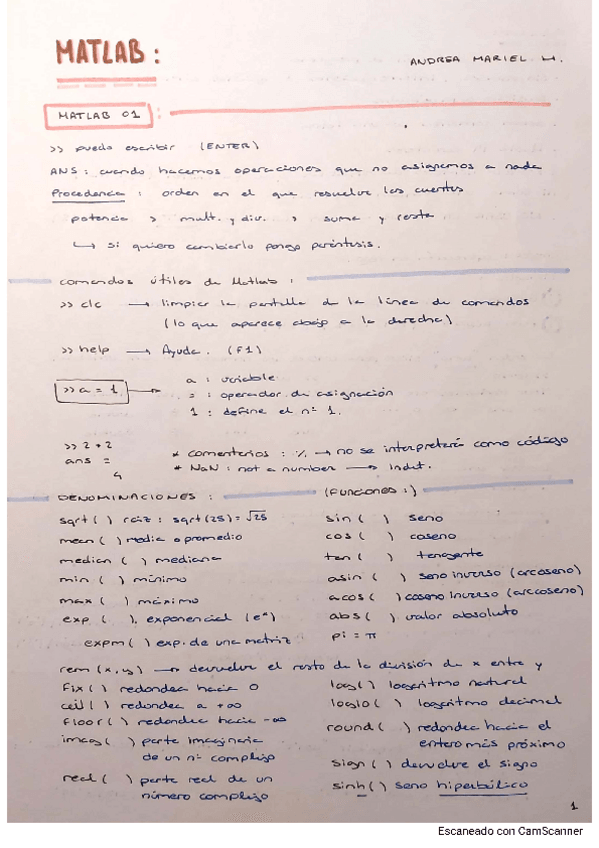 MATLAB :
ANDREA MARIEL H.
MATLAB 01
>> puedo escribir (ENTER)
ANS : cuando hacemos operaciones que no asignamos a nada
Procedencia : orden en el que resuelve las cuentas
potencia > mult. y div. > suma y resta.
↳ si quiero cambiarlo pongo paréntesis.
comandos útiles de Matlab :
>> clc → limpiar la pantalla de la línea de comandos
(lo que aparece abajo a la derecha)
>> help → Ayuda. (F1)
>> a = 1
a : variable
= : operador de asignación
1 : define el nº 1.
>> 2 + 2
ans =
4
* comentarios : % → no se interpretará como código
* NaN : not a number → Indet.
DENOMINACIONES : (FUNCIONES :)
sqrt ( ) raíz : sqrt (25) = √25
mean ( ) media o promedio
median ( ) mediana
min ( ) mínimo
max ( ) máximo
exp ( ), exponencial (eˣ)
expm ( ) exp. de una matriz
sin ( ) seno
cos ( ) coseno
tan ( ) tangente
asin ( ) seno inverso (arcoseno)
acos ( ) coseno inverso (arccoseno)
abs ( ) valor absoluto
pi = π
rem (x,y) → devuelve el resto de la división de x entre y
fix ( ) redondea hacia 0
ceil ( ) redondea a +∞
floor ( ) redondea hacia -∞
imag ( ) parte imaginaria
de un nº complejo
real ( ) parte real de un
número complejo
log ( ) logaritmo natural
log10 ( ) logaritmo decimal
round ( ) redondea hacia el
entero más próximo
sign ( ) devuelve el signo
sinh ( ) seno hiperbólico
1
Escaneado con CamScanner